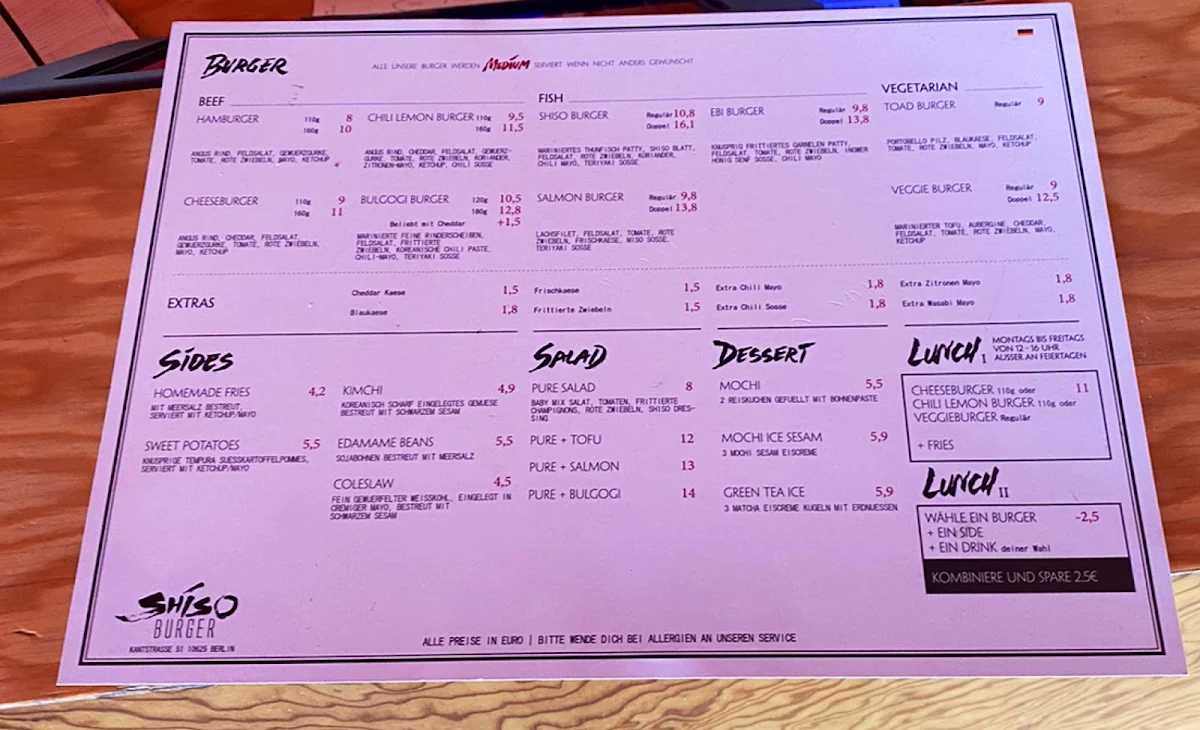 BURGER
ALLE UNSERE BURGER WERDEN MEDIUM SERVIERT WENN NICHT ANDERS GEWÜNSCHT
BEEF
HAMBURGER 110g 8
160g 10
ANGUS RIND, FELDSALAT, GEWUERZGURKE,
TOMATE, ROTE ZWIEBELN, MAYO, KETCHUP
CHILI LEMON BURGER 110g 9,5
160g 11,5
ANGUS RIND, CHEDDAR, FELDSALAT, GEWUERZ-
GURKE, TOMATE, ROTE ZWIEBELN, KORIANDER,
ZITRONEN-MAYO, KETCHUP, CHILI SOSSE
CHEESEBURGER 110g 9
160g 11
ANGUS RIND, CHEDDAR, FELDSALAT,
GEWUERZGURKE, TOMATE, ROTE ZWIEBELN,
MAYO, KETCHUP
BULGOGI BURGER 120g 10,5
180g 12,8
Beliebt mit Cheddar +1,5
MARINIERTE FEINE RINDERSCHEIBEN,
FELDSALAT, FRITTIERTE
ZWIEBELN, KOREANISCHE CHILI PASTE,
CHILI-MAYO, TERIYAKI SOSSE
FISH
SHISO BURGER Regulär 10,8
Doppel 16,1
MARINIERTES THUNFISCH PATTY, SHISO BLATT,
FELDSALAT, ROTE ZWIEBELN, KORIANDER,
CHILI MAYO, TERIYAKI SOSSE
EBI BURGER Regulär 9,8
Doppel 13,8
KNUSPRIG FRITTIERTES GARNELEN PATTY,
FELDSALAT, TOMATE, ROTE ZWIEBELN, INGWER
HONIG SENF SOSSE, CHILI MAYO
SALMON BURGER Regulär 9,8
Doppel 13,8
LACHSFILET, FELDSALAT, TOMATE, ROTE
ZWIEBELN, FRISCHKAESE, MISO SOSSE,
TERIYAKI SOSSE
VEGETARIAN
TOAD BURGER Regulär 9
PORTOBELLO PILZ, BLAUKAESE, FELDSALAT,
TOMATE, ROTE ZWIEBELN, MAYO, KETCHUP
VEGGIE BURGER Regulär 9
Doppel 12,5
MARINIERTER TOFU, AUBERGINE, CHEDDAR,
FELDSALAT, TOMATE, ROTE ZWIEBELN, MAYO,
KETCHUP
EXTRAS
Cheddar Kaese 1,5
Blaukaese 1,8
Frischkaese 1,5
Frittierte Zwiebeln 1,5
Extra Chili Mayo 1,8
Extra Chili Sosse 1,8
Extra Zitronen Mayo 1,8
Extra Wasabi Mayo 1,8
SIDES
HOMEMADE FRIES 4,2
MIT MEERSALZ BESTREUT,
SERVIERT MIT KETCHUP/MAYO
SWEET POTATOES 5,5
KNUSPRIGE TEMPURA SUESSKARTOFFELPOMMES,
SERVIERT MIT KETCHUP/MAYO
KIMCHI 4,9
KOREANISCH SCHARF EINGELEGTES GEMUESE
BESTREUT MIT SCHWARZEM SESAM
EDAMAME BEANS 5,5
SOJABOHNEN BESTREUT MIT MEERSALZ
COLESLAW 4,5
FEIN GEWUERFELTER WEISSKOHL, EINGELEGT IN
CREMIGER MAYO, BESTREUT MIT
SCHWARZEM SESAM
SALAD
PURE SALAD 8
BABY MIX SALAT, TOMATEN, FRITTIERTE
CHAMPIGNONS, ROTE ZWIEBELN, SHISO DRES-
SING
PURE + TOFU 12
PURE + SALMON 13
PURE + BULGOGI 14
DESSERT
MOCHI 5,5
2 REISKUCHEN GEFUELLT MIT BOHNENPASTE
MOCHI ICE SESAM 5,9
3 MOCHI SESAM EISCREME
GREEN TEA ICE 5,9
3 MATCHA EISCREME KUGELN MIT ERDNUESSEN
LUNCH I
MONTAGS BIS FREITAGS
VON 12 - 16 UHR
AUSSER AN FEIERTAGEN
CHEESEBURGER 110g oder 11
CHILI LEMON BURGER 110g oder
VEGGIEBURGER Regulär
+ FRIES
LUNCH II
WÄHLE EIN BURGER -2,5
+ EIN SIDE
+ EIN DRINK deiner Wahl
KOMBINIERE UND SPARE 2.5€
SHISO
BURGER
KANTSTRASSE 51 10625 BERLIN
ALLE PREISE IN EURO | BITTE WENDE DICH BEI ALLERGIEN AN UNSEREN SERVICE